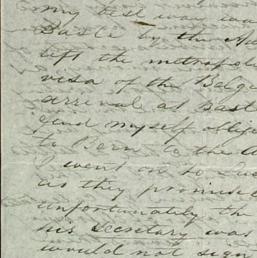 my best way was
Basle by the
left the metropol
visa of the Belg
arrival at Bas
find myself oblige
to Bern to the
I went on to
as they promise
unfortunately the
his secretary was
would not sign